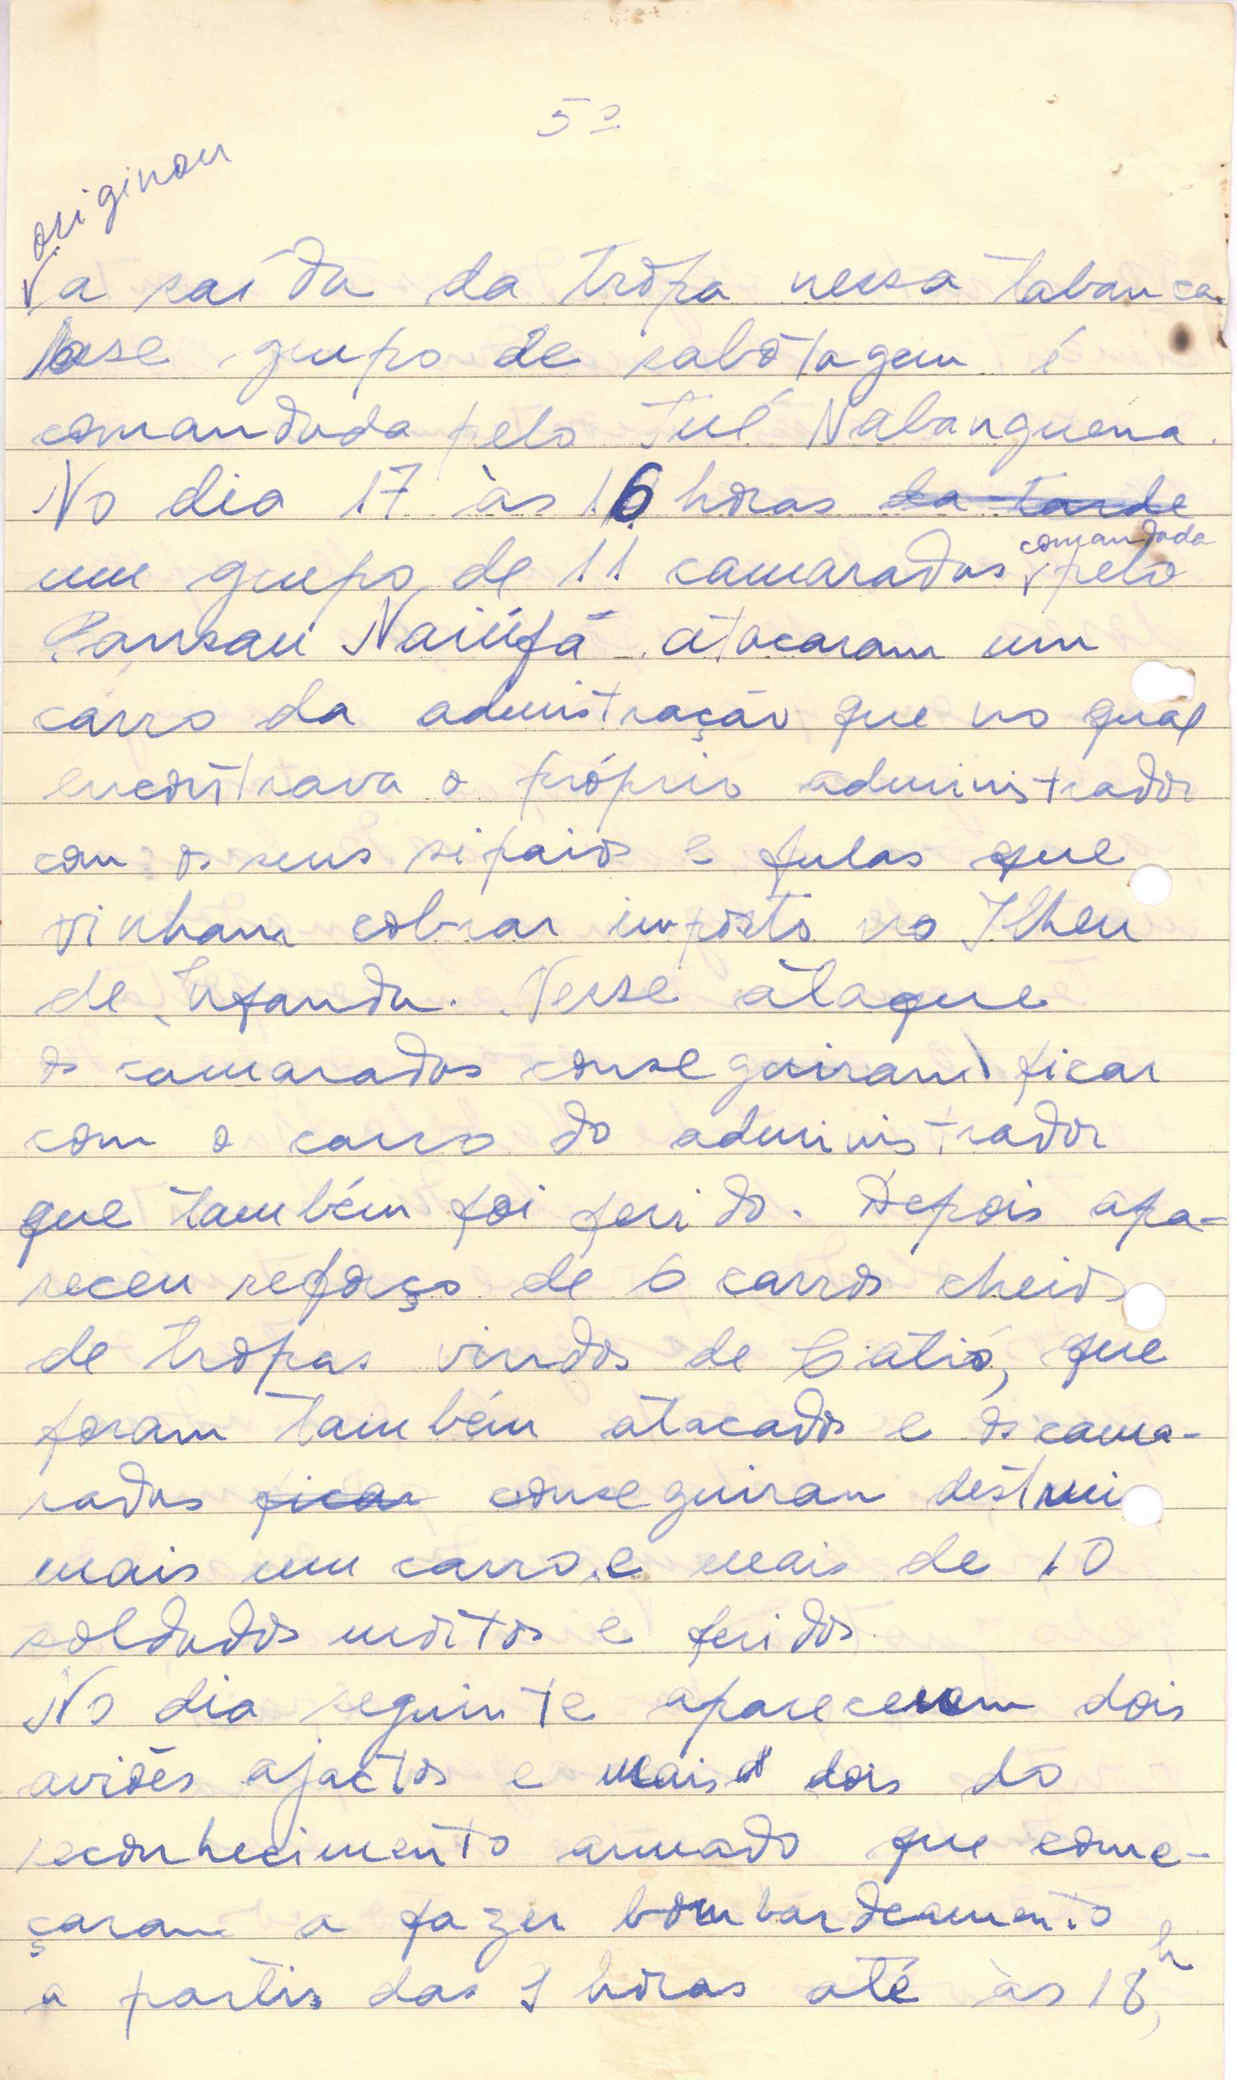 5º
originou
a saída da tropa nessa tabanca.
esse grupo de sabotagem é
comandada pelo Tué Nabanguena.
No dia 17 às 16 horas da tarde
um grupo de 11 camaradas comandada pelo
Pansau Naiüfá atacaram um
carro da admistração que no qual
encontrava o próprio administrador
com os seus sipaios e fulas que
vinham cobrar imposto no Ilheu
de Infanda. Nesse ataque
os camaradas conseguiram ficar
com o carro do administrador
que também foi ferido. Depois apa-
receu reforço de 6 carros cheios
de tropas vindos de Catió, que
foram também atacados e os cama-
radas ficar conseguiran destrui
mais um carro, e mais de 10
soldados mortos e feridos.
No dia seguinte apareceram dois
aviões ajactos e mais dois do
reconhecimento armado que come-
çaram a fazer bombardeamento
a partir das 9 horas até às 18h,